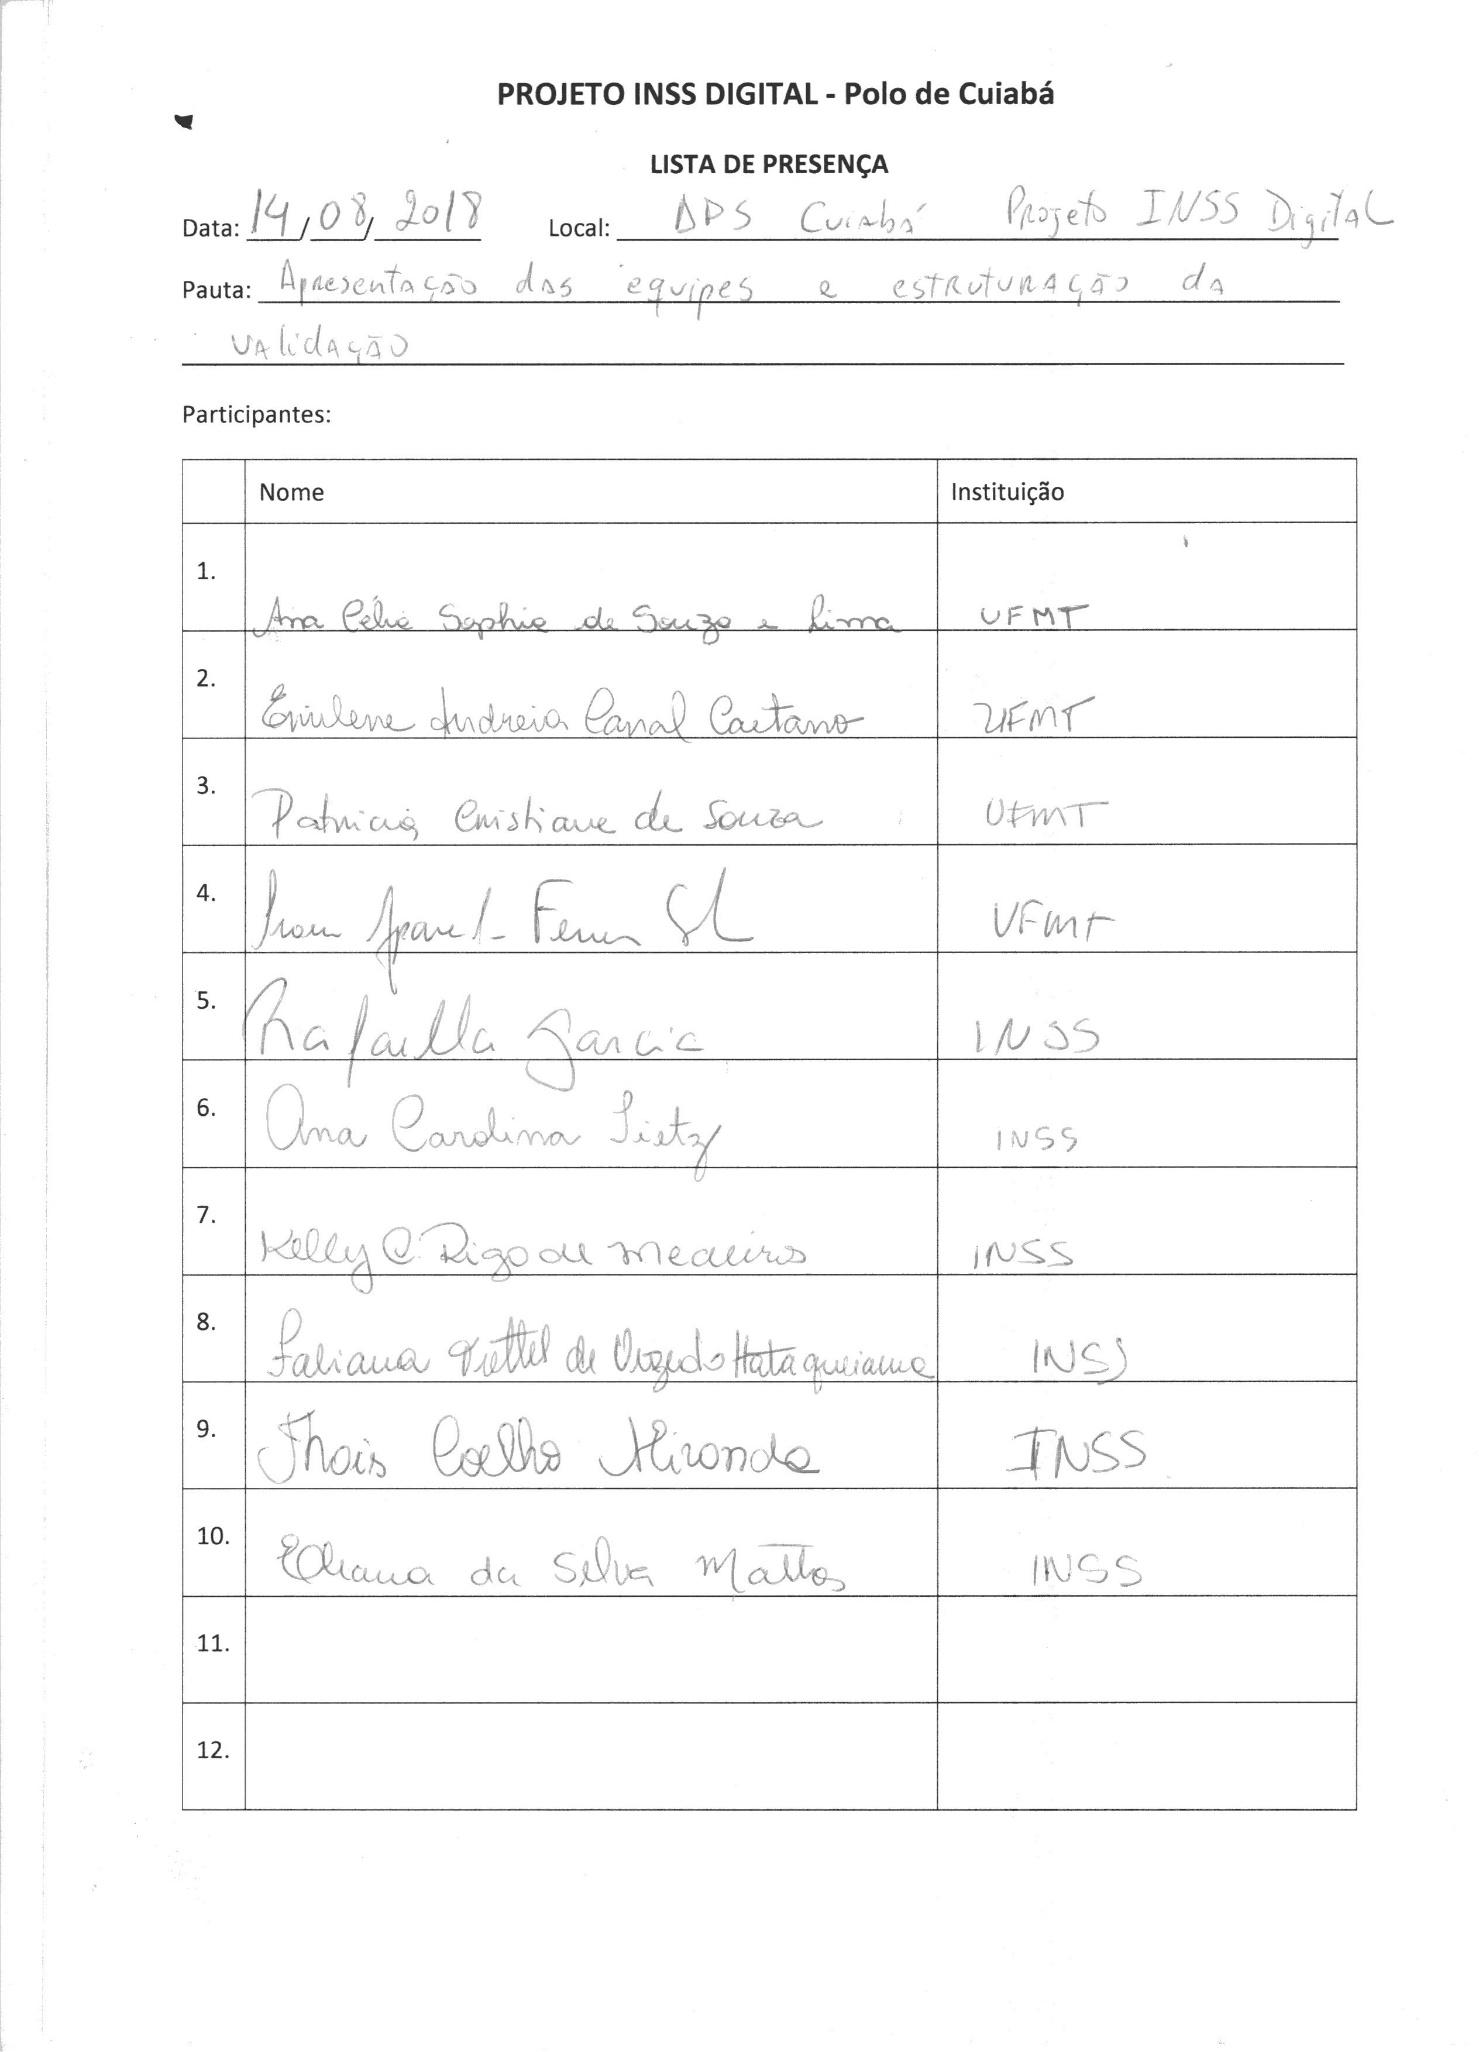 PROJETO INSS DIGITAL - Polo de Cuiabá
LISTA DE PRESENÇA
Data: 14/08/2018 Local: APS Cuiabá Projeto INSS Digital
Pauta: Apresentação das equipes e estruturação da
validação
Participantes:
Nome Instituição
1. Ana Célia Sophia de Souza e Lima UFMT
2. Andreia Canal Caetano UFMT
3. Patricia Cristiane de Souza UFMT
4. UFMT
5. Rafaella Garcia INSS
6. Ana Carolina INSS
7. Kelly C. Rigo de Medeiros INSS
8. Fabiana de INSS
9. Thais Coelho Miranda INSS
10. Eliana da Silva Mattos INSS
11.
12.